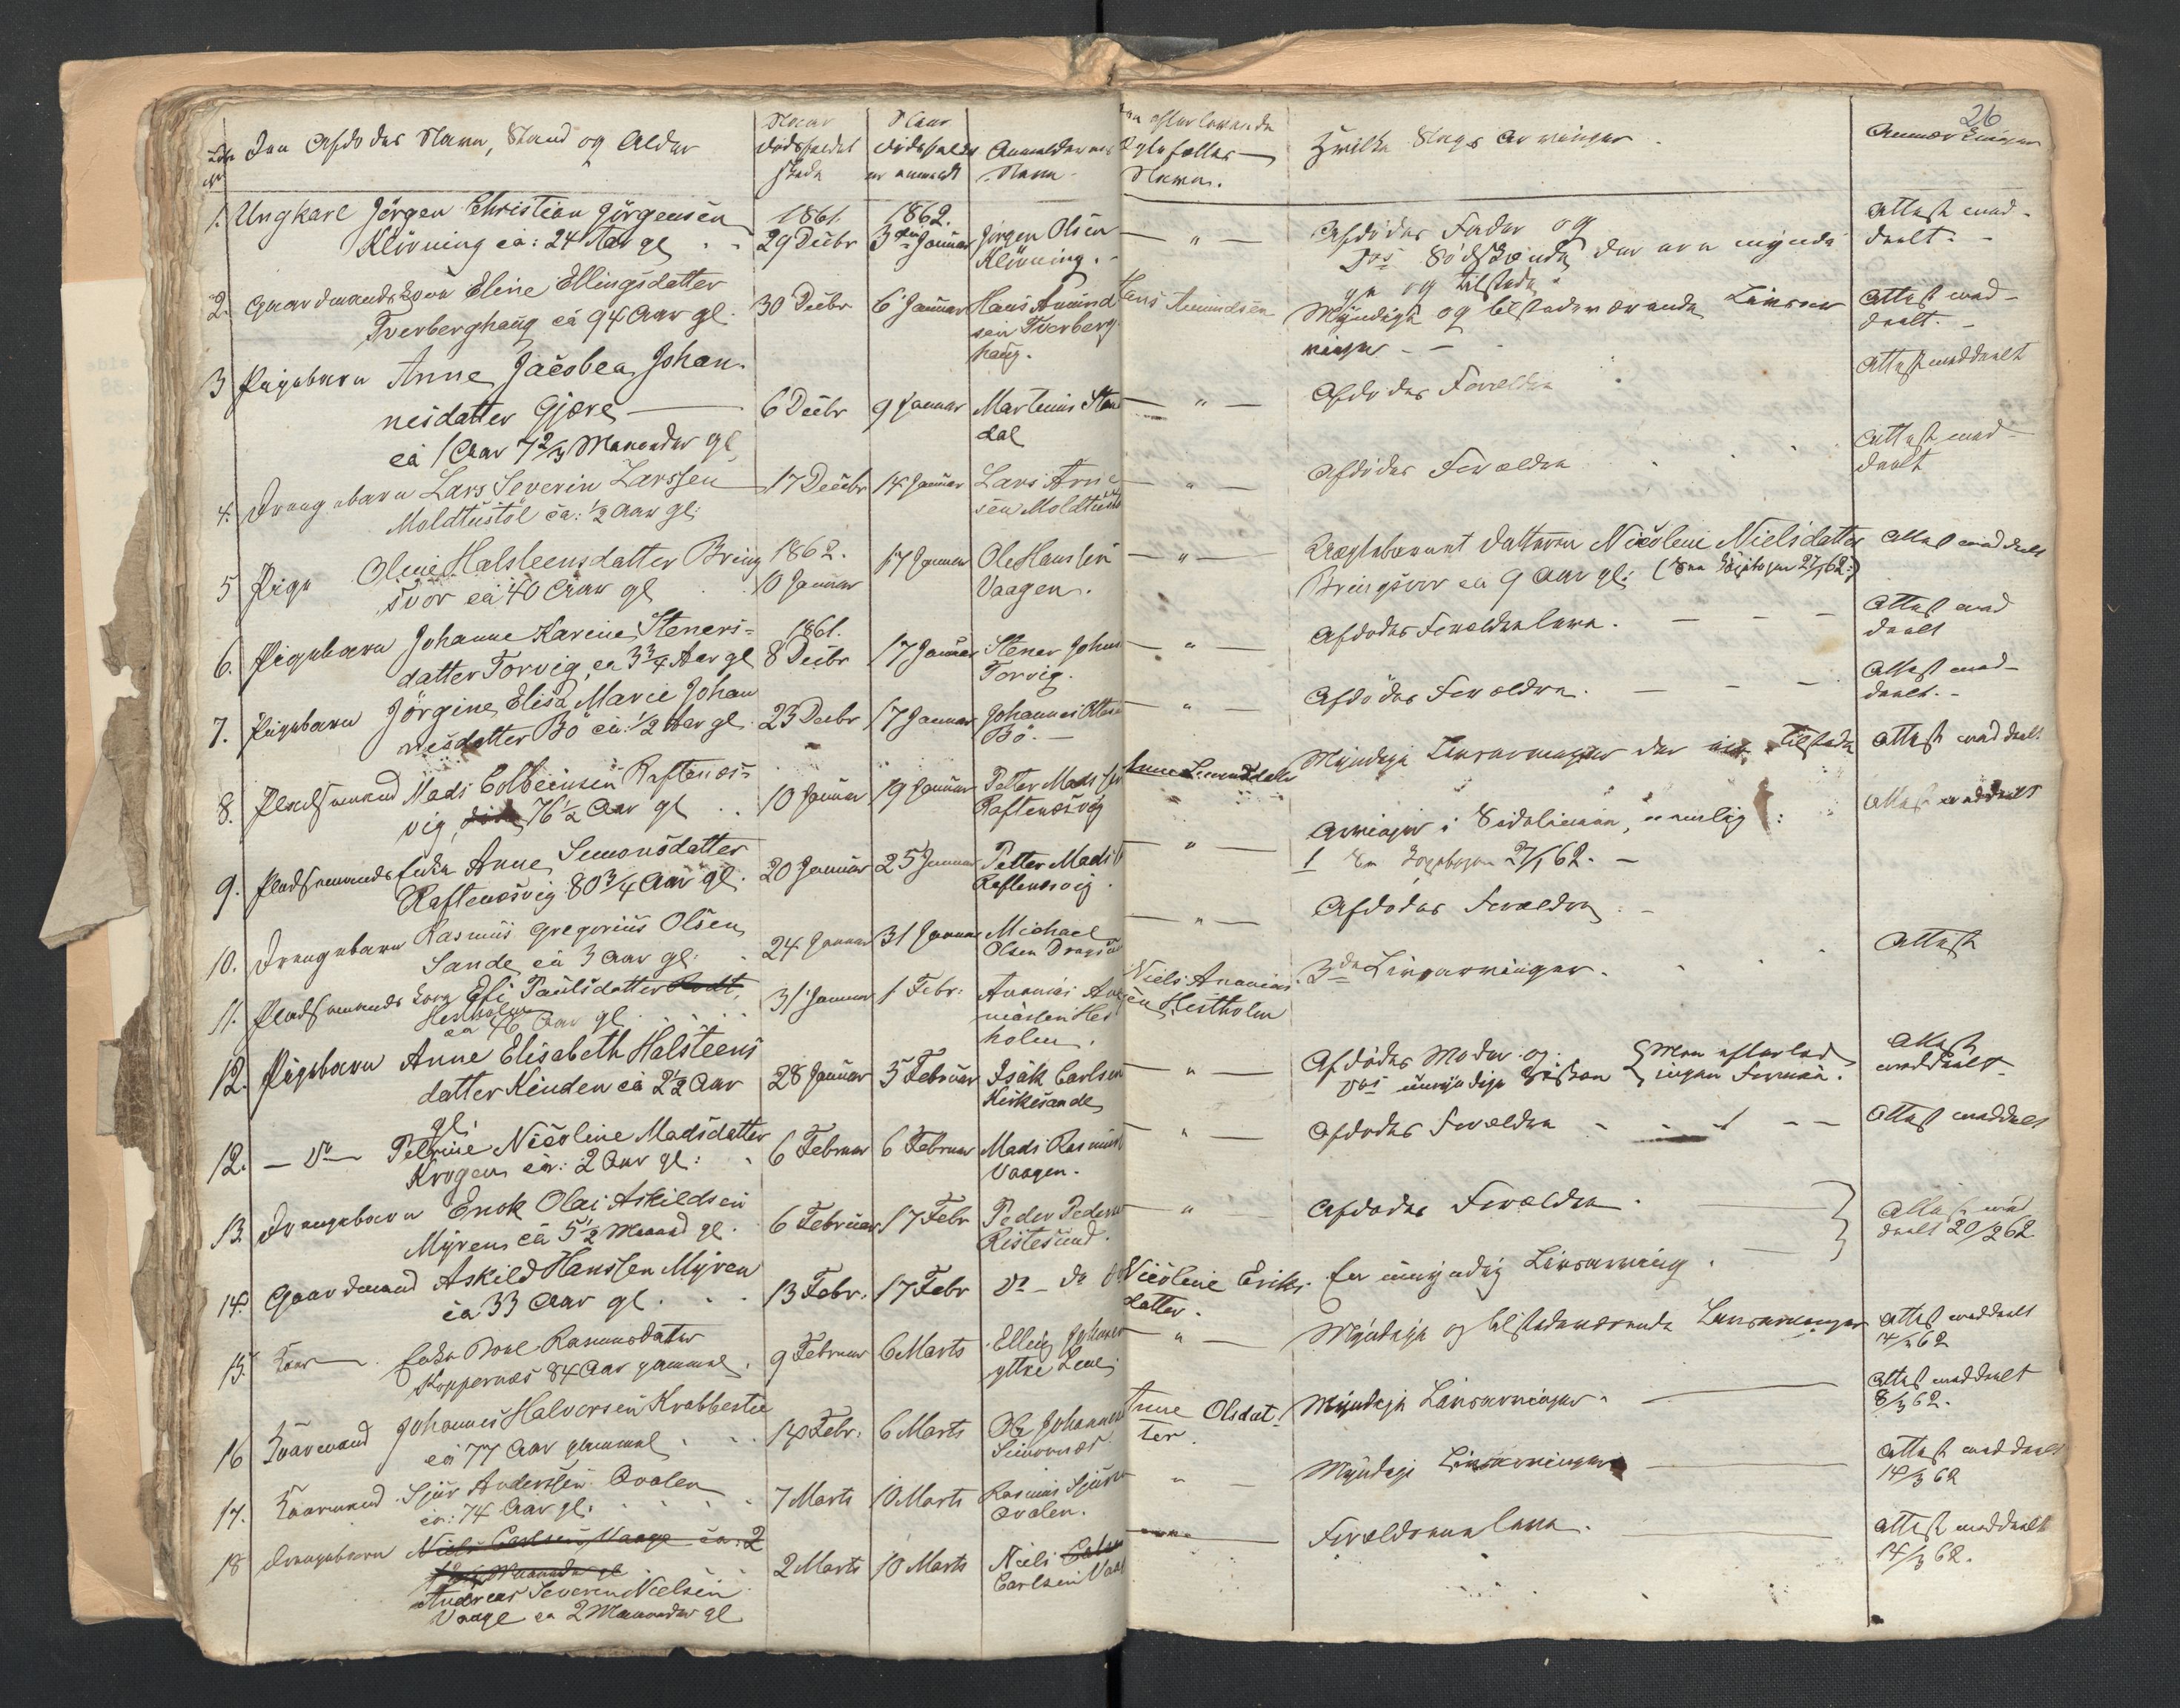 26
Den Afdødes Navn, Stand og Alder
Naar dødsfaldet skede
Naar dødsfaldet er anmeldt
Anmelderens Navn
Den efterlevende Ægtefælles Navn.
Hvilke Slags Arvinger.
Anmærkninger
1. Ungkarl Jörgen Christian Jörgensen
Klövning ca: 24 Aar gl
1861. 29 Decbr
1862. 3 Januar
Jörgen Olsen Klövning.
— " —
Afdödes Fader og
Do Södskende, der ere myndige og tilstede
Attest meddeelt.
2. Gaardmandskone Eline Ellingsdatter
Tverberghaug ca 94 Aar gl.
30 Decbr
6 Januar
Hans Amundsen Tverberghaug.
Hans Amundsen
Myndige og tilstedeværende Livsarvinger
Attest meddeelt.
3 Pigebarn Anne Jacobea Johannesdatter Gjöre
ca 1 Aar 7 2/3 Maaneder gl
6 Decbr
9 Januar
Martinus Standal
— " —
Afdödes Forældre
Attest meddeelt
4. Drengebarn Lars Severin Larssen
Moldtustöl ca: 1/2 Aar gl:
17 Decbr
14 Januar
Lars Arnesen Moldtustöl
— " —
Afdödes Forældre
Attest meddeelt
5 Pige Oline Halsteensdatter Bringsvor ca 40 Aar gl
1862. 10 Januar
17 Januar
Ole Hanssen Vaagen.
— " —
Uægtebarnet Datteren Nicoline Nielsdatter
Bringsvor ca 9 Aar gl: 27/1 62
Attest meddeelt
6. Pigebarn Johanne Karine Stenersdatter Torvig, ca 3 3/4 Aar gl
1861. 8 Decbr
17 Januar
Stener Johns Torvig.
— " —
Afdödes Forældre leve.
Attest meddeelt
7. Pigebarn Jörgine Elisa Marie Johannesdatter Bö ca: 1/2 Aar gl.
23 Decbr
17 Januar
Johannes Bö.
— " —
Afdödes Forældre.
Attest meddeelt.
8. Pladsmand Mads Colbeinsen Raftenæsvig, 76 1/2 Aar gl
10 Januar
19 Januar
Petter Madssen Raftenæsvig
Anne Simonsdatter
Myndige Livsarvinger der tilstede
Attest meddeelt
9. Pladsmands Enke Anne Simonsdatter
Raftenæsvig 80 3/4 Aar gl.
20 Januar
25 Januar
Petter Mads Raftenæsvig.
— " —
Arvinger i Sidelinien, nemlig:
27/1 62.
Attest meddeelt
10. Drengebarn Rasmus Gregorius Olsen
Sande ca 3 Aar gl:
24 Januar
31 Januar
Michael Olsen
— " —
Afdödes Forældre
11. Pladsmands kone Eli Paulsdatter
Hestholm
ca 46 Aar gl
31 Januar
1 Febr:
Ananias Ananiassen Hestholm.
Niels Ananiassen Hestholm
3de Livsarvinger.
Attest
12. Pigebarn Anne Elisabeth Halsteensdatter Kinden ca 2 1/2 Aar gl.
28 Januar
5 Februar
Isak Carlsen Kirkesande
— " —
Afdödes Moder og
Do umyndige Södsken
Men efterlod ingen Formue.
Attest meddeelt
12. — Do — Petrine Nicoline Madsdatter
Krogen ca: 2 Aar gl:
6 Februar
6 Februar
Mads Rasmus Vaagen.
" —
Afdödes Forældre
Attest meddeelt
13. Drengebarn Enok Olai Askildsen
Myren ca 5 1/2 Maaned gl.
6 Februar
17 Febr
Peder Peders Ristesund.
— " —
Afdödes Forældre
Attest meddeelt 20/2 62
14. Gaardmand Askild Hanssen Myren
ca 33 Aar gl.
13 Febr.
17 Febr
Do — Do
Nicoline Eriksdatter.
En umyndig Livsarving.
15. Enke Rasmusdatter
Koppernæs 84 Aar gammel.
9 Februar
6 Marts
Elling
— " —
Myndige og tilstedeværende Livsarvinger
Attest meddeelt 7/3 62
16 Kaarmand Johannes Halvorsen Krabbestie
ca 77 Aar gammel
14 Febr.
6 Marts
Ole Johannes
Anne Olsdatter.
Myndige Livsarvinger
Attest meddeelt 8/3 62.
17. Kaarmand Sjur Andersen Qvalen
ca: 74 Aar gl.
7 Marts
10 Marts
Rasmus Sjurs Qvalen.
" —
Myndige Livsarvinger
Attest meddeelt 14/3 62
18 Drengebarn Niels Carlsen Vaage ca: 2
Maaneder gl
Andreas Severin Nielsen
Vaage ca 2 Maaneder gl
2 Marts
10 Marts
Niels Carlsen Vaage
Forældrene leve.
Attest meddeelt 14/3 62.